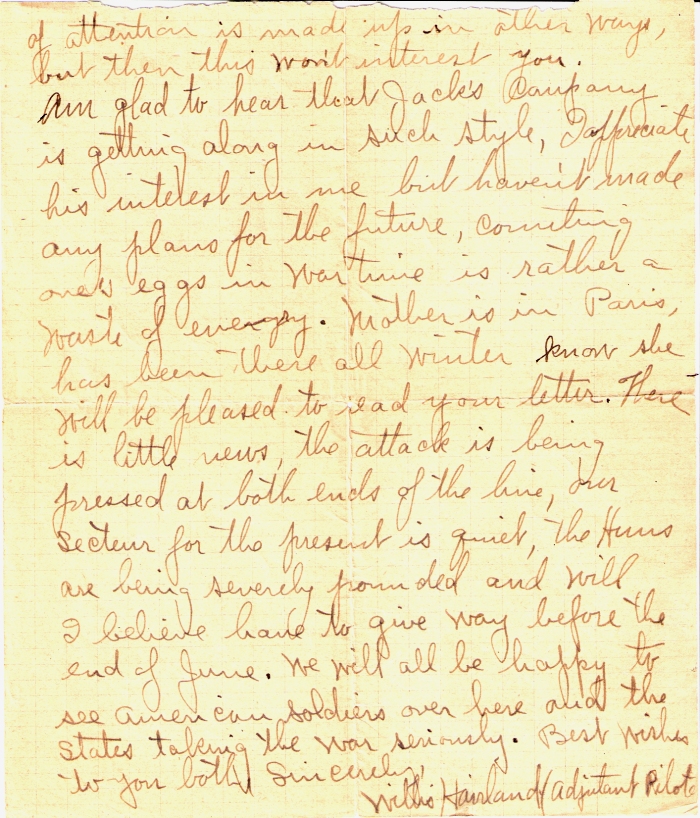 of attention is made up in other ways,
but then this won't interest you.
Am glad to hear that Jack's Company
is getting along in such style, I appreciate
his interest in me but haven't made
any plans for the future, counting
one's eggs in War time is rather a
waste of energy. Mother is in Paris,
has been there all Winter know she
will be pleased to read your letter. There
is little news, the attack is being
pressed at both ends of the line, our
Secteur for the present is quiet, the Huns
are being severely pounded and will
I believe have to give way before the
end of June. We will all be happy to
see american soldiers over here and the
States taking the war seriously. Best Wishes
to you both, Sincerely,
Willis Haviland (adjutant Pilote